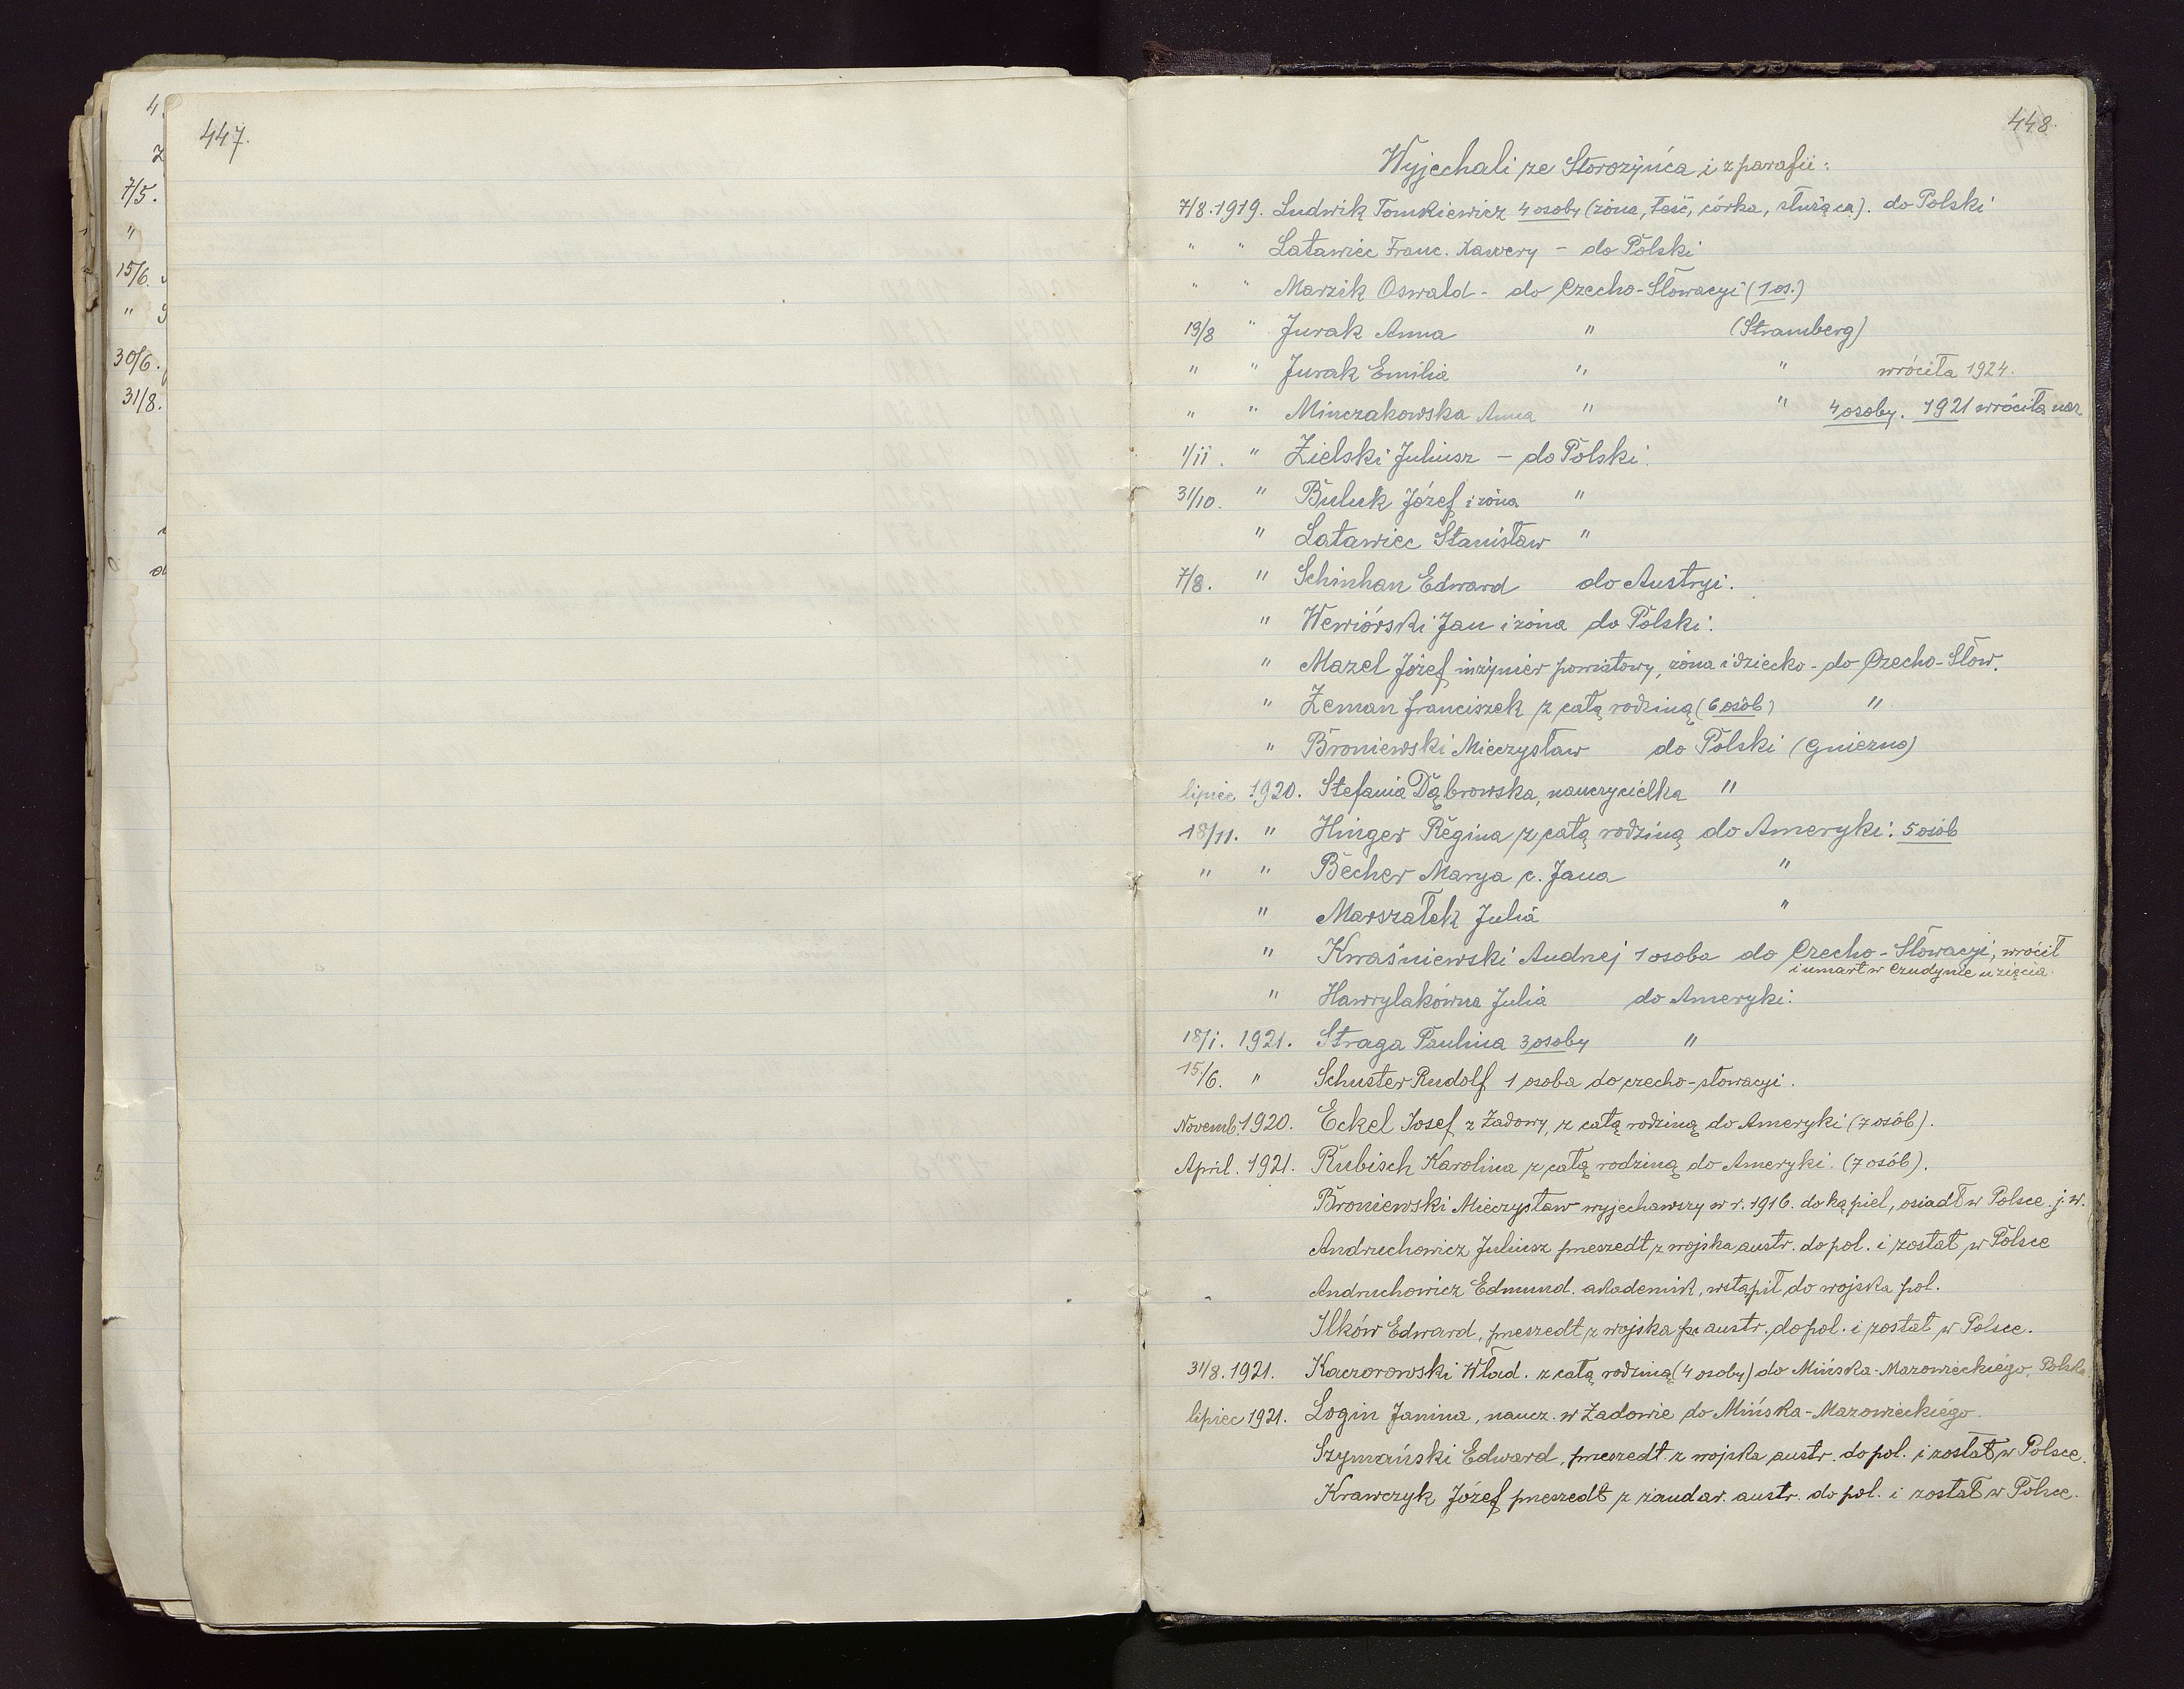 447.
7/5.
"
15/6.
"
30/6.
31/8.
448.
Wyjechali ze Storożyńca i z parafii:
7/8. 1919. Ludwik Tomkiewicz 4 osoby (żona, teść, córka, służąca). do Polski
" " Latawiec Franc. Xawery - do Polski
" " Marzik Oswald - do Czecho-Słowacyi (1 os.)
19/8 " Jurak Anna " (Stramberg)
" " Jurak Emilia " " wróciła 1924.
" " Minczakowska Anna " " 4 osoby. 1921 wróciła
1/11. " Zielski Juliusz - do Polski.
31/10. " Buluk Józef i żona "
" Latawiec Stanisław "
7/8. " Schinhan Edward do Austryi.
" Wewiórski Jan i żona do Polski.
" Mazel Józef inżynier powiatowy, żona i dziecko - do Czecho-Słow.
" Zeman Franciszek z całą rodziną (6 osób) "
" Broniewski Mieczysław do Polski (Gniezno)
lipiec 1920. Stefania Dąbrowska, nauczycielka "
18/11. " Hinger Regina z całą rodziną do Ameryki: 5 osób
" " Becher Marya c. Jana "
" Marszałek Julia "
" Kwaśniewski Andrzej 1 osoba do Czecho-Słowacyi, wrócił
i umarł w Czudynie u zięcia
" Hawrylakówna Julia do Ameryki.
18/1. 1921. Straga Paulina 3 osoby "
15/6. " Schuster Rudolf 1 osoba do czecho-słowacyi.
Novemb. 1920. Eckel Josef z Żadowy, z całą rodziną do Ameryki (7 osób).
April. 1921. Rubisch Karolina z całą rodziną do Ameryki. (7 osób).
Broniewski Mieczysław wyjechawszy w r. 1916. do kąpiel, osiadł w Polsce. j. w.
Andruchowicz Juliusz przeszedł z wojska austr. do pol. i został w Polsce
Andruchowicz Edmund. akademik, wstąpił do wojska pol.
Ilków Edward, przeszedł z wojska austr. do pol. i został w Polsce.
31/8. 1921. Kaczorowski Wład. z całą rodziną (4 osoby) do Mińska-Mazowieckiego, Polska.
lipiec 1921. Login Janina, naucz. w Żadowie do Mińska-Mazowieckiego.
Szymański Edward, przeszedł z wojska austr. do pol. i został w Polsce.
Krawczyk Józef przeszedł z żandar. austr. do pol. i został w Polsce.